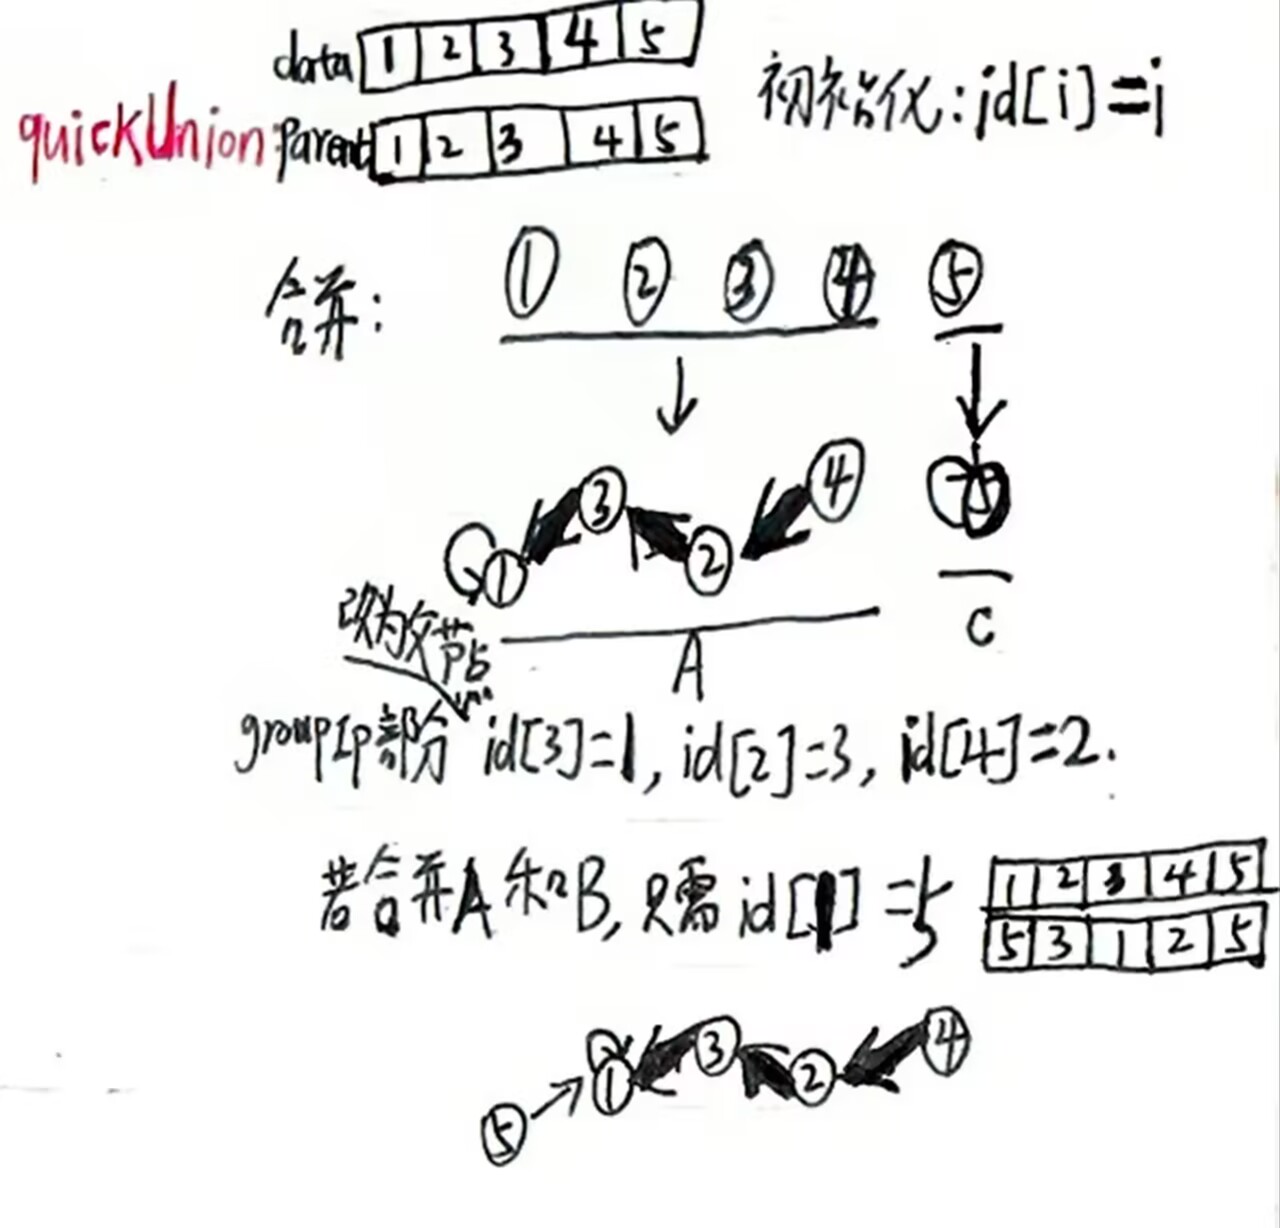 data 1 2 3 4 5
quickUnion: parent 1 2 3 4 5
初始化: id[i]=i
合并: ① ② ③ ④ ⑤
③ ④ ⑤
① ②
改为父节点 A C
groupIp部分 id[3]=1, id[2]=3, id[4]=2.
若合并A和B, 只需 id[1]=5
1 2 3 4 5
5 3 1 2 5
① ③ ② ④
⑤